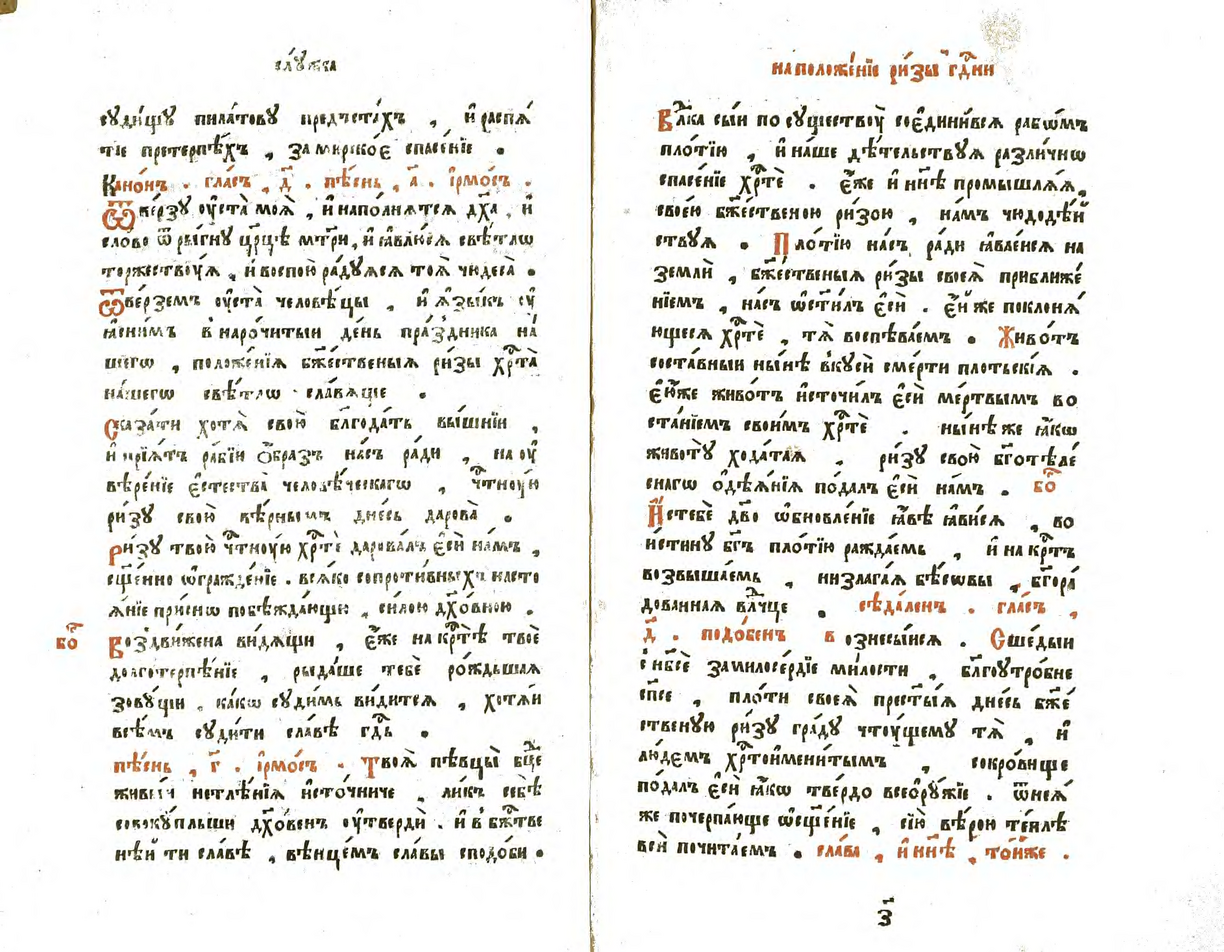 слꙋ́жба
сꙋди́щꙋ пила́товꙋ предъста́хъ , и҆ распѧ́
тїе претерпѣ́хъ , за мирско́е спасе́нїе .
Кано́нъ . гла́съ , д҃ . пѣ́снь , а҃ . і҆рмо́съ .
Ѿве́рзꙋ оу҆ста̀ моѧ̀ , и҆ напо́лнѧтсѧ дх҃а , и҆
сло́во ѿры́гнꙋ цр҃цѣ мт҃ри , и҆ ꙗ҆влю́сѧ свѣ́тлѡ
торжествꙋ́ѧ , и҆ воспою̀ ра́дꙋѧсѧ тоѧ̀ чюдеса̀ .
Ѿве́рземъ оу҆ста̀ человѣ́цы , и҆ ꙗ҆зы́къ оу҆
ꙗ҆сни́мъ в нарочи́тыи де́нь пра́здника на́
шегѡ , положе́нїѧ бж҃е́ственыѧ ри́зы хр҃та̀
на́шегѡ свѣ́тлѡ сла́вѧще .
Сказа́ти хотѧ̀ свою̀ бл҃года́ть вы́шнїи ,
и҆ прїѧ́тъ ра́бїи ѻ҆́бразъ на́съ ра́ди , на оу҆
вѣре́нїе є҆стества̀ человѣ́ческагѡ , чт҃нꙋ́ю
ри́зꙋ свою̀ вѣ́рнымъ дне́сь дарова̀ .
Ри́зꙋ твою̀ чт҃нꙋ́ю хр҃тѐ дарова́лъ є҆сѝ на́мъ ,
сщ҃е́нно ѡ҆гражде́нїе . всѧ́ко сопроти́вныхъ насто
ѧ́нїе при́снѡ побѣжда́ющи , си́лою дх҃о́вною .
бо҃
Воздви́жена ви́дѧщи , є҆́же на кр҃тѣ̀ твоѐ
долготерпѣ́нїе , рыда́ше тебѐ ро́ждьшаѧ
зовꙋ́щи , ка́кѡ сꙋди́мь ви́дитсѧ , хотѧ́и
всѣ́мъ сꙋди́ти сла́вѣ гд҃ь .
пѣ́снь , г҃ . і҆рмо́съ . Твоѧ̀ пѣвцы̀ бц҃е
живы́и нетлѣ́нїѧ и҆сто́чниче , ли́къ себѣ̀
совокꙋ́пльши дх҃о́венъ оу҆твердѝ . и҆ в бж҃тве
нѣ́и ти сла́вѣ , вѣнце́мъ сла́вы сподо́би .
на положе́нїе ри́зы гд҃ни
Влⷣка сы́и по сꙋществꙋ̀ соедини́всѧ рабѡ́мъ
пло́тїю , и҆ на́ше дѣ́тельствꙋѧ разли́чнѡ
спасе́нїе хр҃тѐ . є҆́же и҆ нн҃ѣ промышлѧ́ѧ ,
свое́ю бж҃е́ственою ри́зою , на́мъ чюдодѣ́и
ствꙋѧ . Пло́тїю на́съ ра́ди ꙗ҆вле́исѧ на
землѝ , бж҃е́ственыѧ ри́зы своеѧ̀ приближе́
нїемъ , на́съ ѡ҆ст҃и́лъ є҆сѝ . є҆́и же поклонѧ́
ющесѧ хр҃тѐ , тѧ̀ воспѣва́емъ . Живо́тъ
соста́вныи ны́нѣ вкꙋсѝ сме́рти пло́тьскїѧ .
є҆́юже живо́тъ и҆сточи́лъ є҆сѝ ме́ртвымъ во
ста́нїемъ свои́мъ хр҃тѐ . ны́нѣ же ꙗ҆́кѡ
животꙋ̀ хода́таѧ , ри́зꙋ свою̀ бг҃отѣле́
снагѡ ѻ҆дѣѧ́нїѧ пода́лъ є҆сѝ на́мъ . бо҃
И҆стебѐ дв҃о ѡ҆бновле́нїе ꙗ҆́вѣ ꙗ҆ви́сѧ , во
и́стинꙋ бг҃ъ пло́тїю ражда́емь , и҆ на кр҃тъ
возвыша́емь , низлага́ѧ бѣ́сѡвы , бг҃ора́
дованнаѧ влⷣчце . сѣда́ленъ . гла́съ ,
д҃ . подо́бенъ в ознесы́исѧ . Сше́дыи
с нб҃сѐ за милосе́рдїе ми́лости , бл҃гоꙋтро́бне
сп҃се , пло́ти своеѧ̀ прест҃ы́ѧ дне́сь бж҃е́
ственꙋю ри́зꙋ гра́дꙋ чтꙋ́щемꙋ тѧ̀ , и҆
лю́демъ хр҃тоимени́тымъ , сокро́вище
пода́лъ є҆сѝ ꙗ҆́кѡ тве́рдо всеѻрꙋ́жїе . ѿнеѧ́
же почерпа́юще ѡ҆сщ҃е́нїе , сїю̀ вѣ́рою те́плѣ
всѝ почита́емъ . сла́ва , и҆ нн҃ѣ , то́иже .
з҃